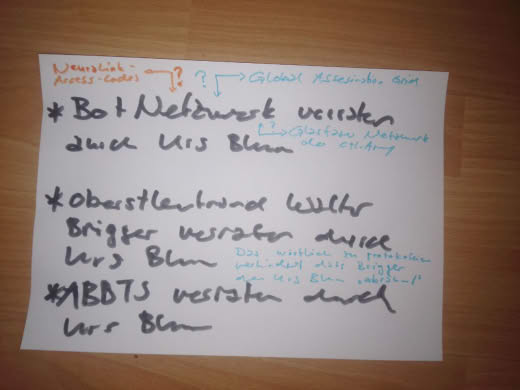 Neuralink-
Access-Codes ? ? Global Assesination Grid
* Bot Netzwerk verraten
durch Urs Blum
? Glasfaser Netzwerk
der CH-Army
* Oberstleutnand Walter
Brügger verraten durch
Urs Blum
Das wörtlich zu protokolieren
verhindert dass Brügger
den Urs Blum
* ABBTS verraten durch
Urs Blum